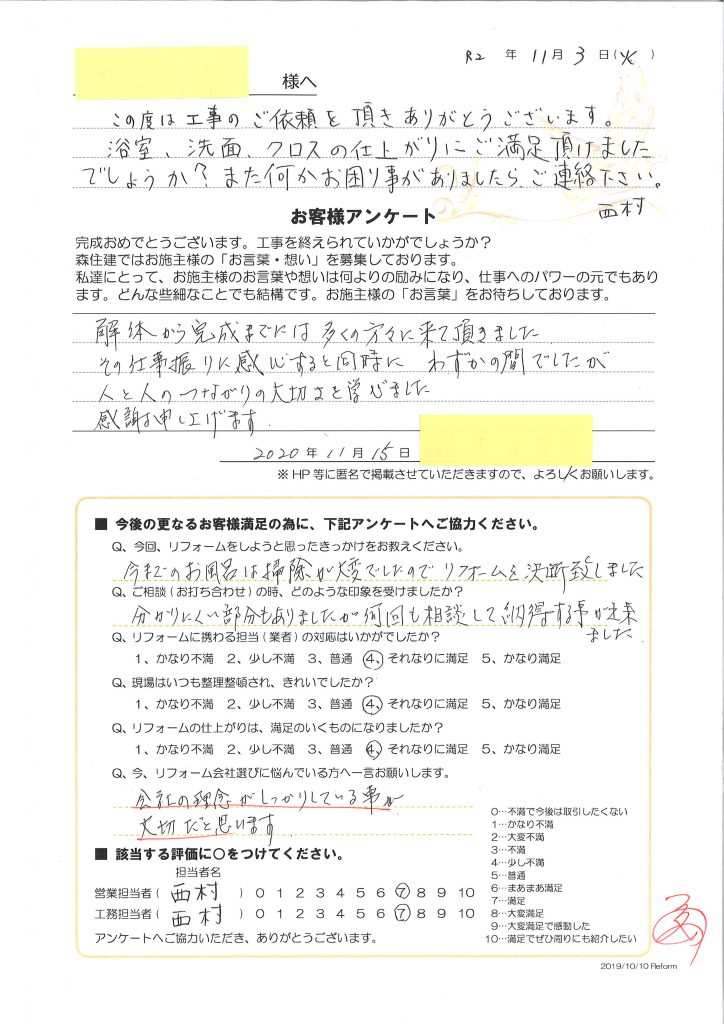 R2 年 11月 3 日(火)
様へ
この度は工事のご依頼を頂きありがとうございます。
浴室、洗面、クロスの仕上がりにご満足頂けました
でしょうか？また何かお困り事がありましたら、ご連絡下さい。
西村
お客様アンケート
完成おめでとうございます。工事を終えられていかがでしょうか？
森住建ではお施主様の「お言葉・想い」を募集しております。
私達にとって、お施主様のお言葉や想いは何よりの励みになり、仕事へのパワーの元でもあり
ます。どんな些細なことでも結構です。お施主様の「お言葉」をお待ちしております。
解体から完成までには多くの方々に来て頂きました
その仕事振りに感心すると同時に わずかの間でしたが
人と人のつながりの大切さを学びました
感謝お申し上げます.
2020 年 11 月 15 日
※HP 等に匿名で掲載させていただきますので、よろしくお願いします。
■ 今後の更なるお客様満足の為に、下記アンケートへご協力ください。
Q、今回、リフォームをしようと思ったきっかけをお教えください。
今までのお風呂は掃除が大変でしたのでリフォームを決断致しました
Q、ご相談（お打ち合わせ）の時、どのような印象を受けましたか？
分かりにくい部分もありましたが何回も相談して納得する事が出来
ました
Q、リフォームに携わる担当（業者）の対応はいかがでしたか？
1、かなり不満 2、少し不満 3、普通 4、それなりに満足 5、かなり満足
Q、現場はいつも整理整頓され、きれいでしたか？
1、かなり不満 2、少し不満 3、普通 4、それなりに満足 5、かなり満足
Q、リフォームの仕上がりは、満足のいくものになりましたか？
1、かなり不満 2、少し不満 3、普通 4、それなりに満足 5、かなり満足
Q、今、リフォーム会社選びに悩んでいる方へ一言お願いします。
会社の理念がしっかりしている事が
大切だと思います
■ 該当する評価に○をつけてください。
担当者名
営業担当者（ 西村 ）0 1 2 3 4 5 6 7 8 9 10
工務担当者（ 西村 ）0 1 2 3 4 5 6 7 8 9 10
アンケートへご協力いただき、ありがとうございます。
0…不満で今後は取引したくない
1…かなり不満
2…大変不満
3…不満
4…少し不満
5…普通
6…まあまあ満足
7…満足
8…大変満足
9…大変満足で感動した
10…満足でぜひ周りにも紹介したい
2019/10/10 Reform